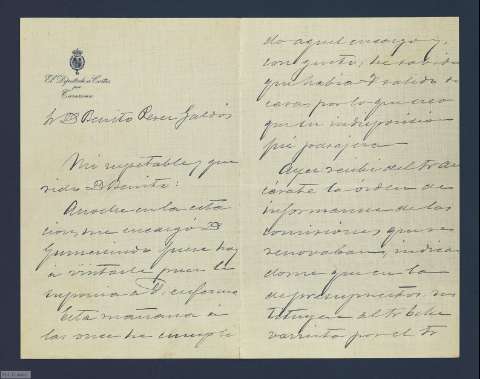 El Diputado a Cortes
por
Sr D Benito Perez Galdós
Mi respetable y que
rido D Benito:
Anoche en la esta
cion, me encargó D
Gumersindo fuese hoy
a visitarle pues le
suponia a V. enfermo
Esta mañana a
las once he cumpli
do aquel encargo y,
con gusto, he sabido
que habia V salido de
casa por lo que creo
que su indisposicion
fué pasajera
Ayer recibi del Sr
la orden de
informarme de las
comisiones que se
renovaban, indican
dome que en la
de presupuestos
al Sr
por el Sr